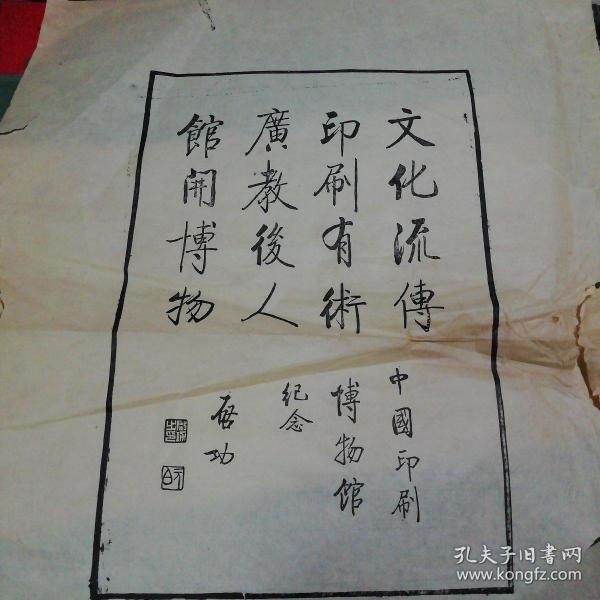 文化流傳
印刷有術
廣教後人
館開博物
中國印刷
博物館
紀念
启功
孔夫子旧书网
www.kongfz.com